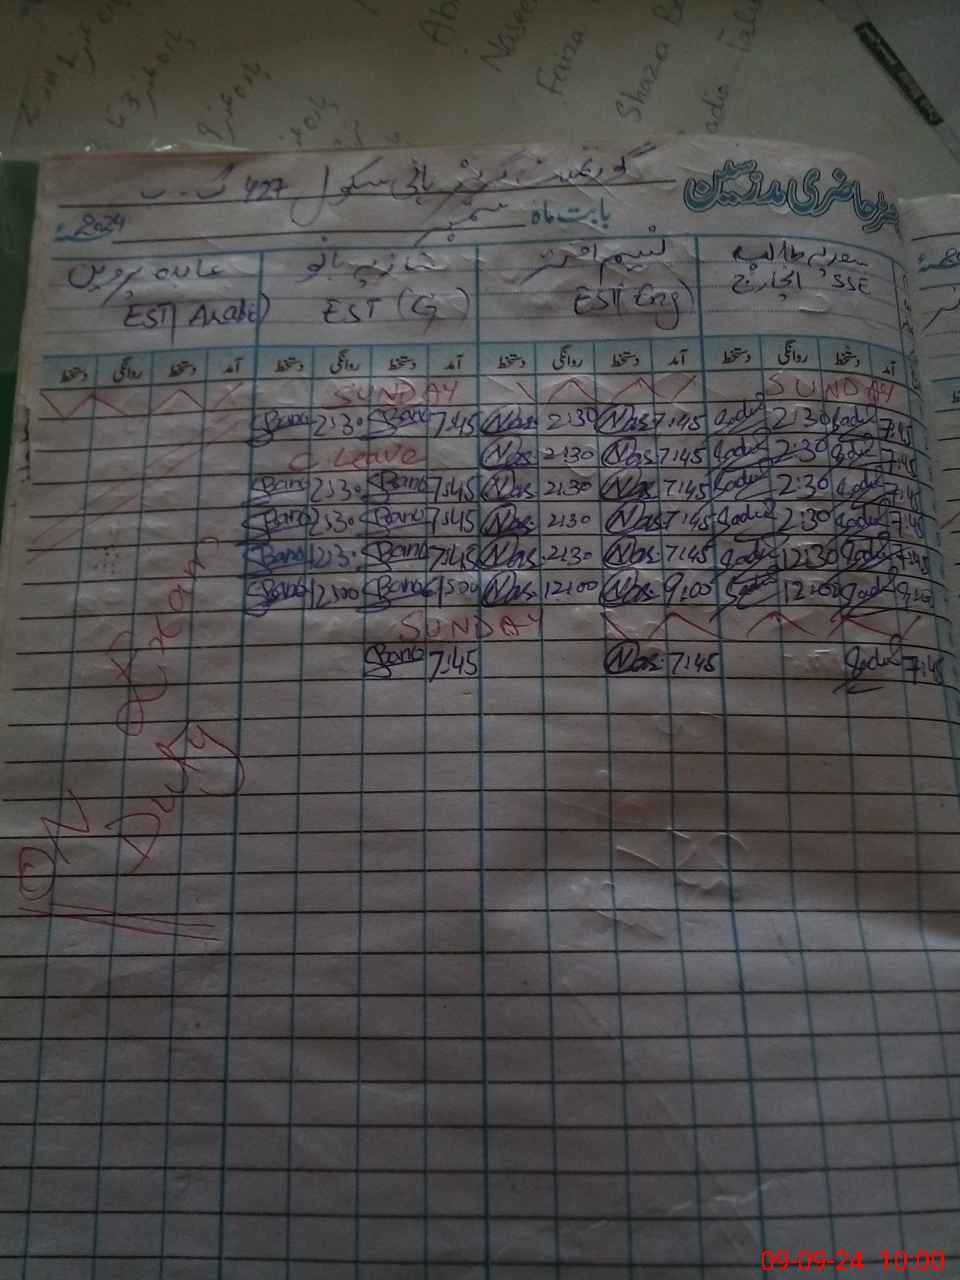 گورنمنٹ گرلز ہائی سکول 427 گ ۔ ب
رجسٹر حاضری مدرسین
بابت ماہ ستمبر 2024ء
سعدیہ طالب نسیم اختر شازیہ بانو عابدہ پروین
انچارج SSE EST( Eng) EST (G) EST( Arabic)
آمد دستخط روانگی دستخط آمد دستخط روانگی دستخط آمد دستخط روانگی دستخط آمد دستخط روانگی دستخط
SUNDAY SUNDAY
7:45 Sadia 2:30 Sadia 7:45 Nas. 2:30 Nas. 7:45 Bano 2:30 Bano
7:45 Sadia 2:30 Sadia 7:45 Nas. 2:30 Nas. C. Leave
7:45 Sadia 2:30 Sadia 7:45 Nas. 2:30 Nas. 7:45 Bano 2:30 Bano
7:45 Sadia 2:30 Sadia 7:45 Nas. 2:30 Nas. 7:45 Bano 2:30 Bano
7:45 Sadia 12:30 Sadia 7:45 Nas. 2:30 Nas. 7:45 Bano 12:30 Bano
9:00 Sadia 12:00 Sadia 9:00 Nas. 12:00 Nas. Bano 12:00 Bano
SUNDAY
7:45 Sadia 7:45 Nas. 7:45 Bano
ON
Duty
Exam
Faiza
Shaza
09-09-24 10:00